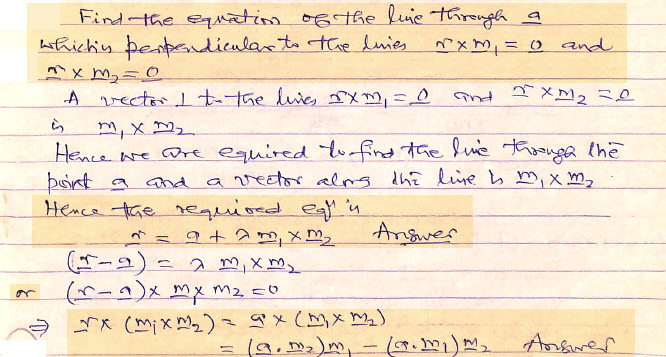 Find the equation of the line through a
which is perpendicular to the lines r × m₁ = 0 and
r × m₂ = 0
A vector ⊥ to the lines r × m₁ = 0 and r × m₂ = 0
is m₁ × m₂
Hence we are equired to find the line through the
point a and a vector along the line is m₁ × m₂.
Hence the required eqⁿ is
r = a + λ m₁ × m₂ Answer
(r − a) = λ m₁ × m₂
or (r − a) × m₁ × m₂ = 0
⇒ r × (m₁ × m₂) = a × (m₁ × m₂)
= (a . m₂) m₁ − (a . m₁) m₂ Answer